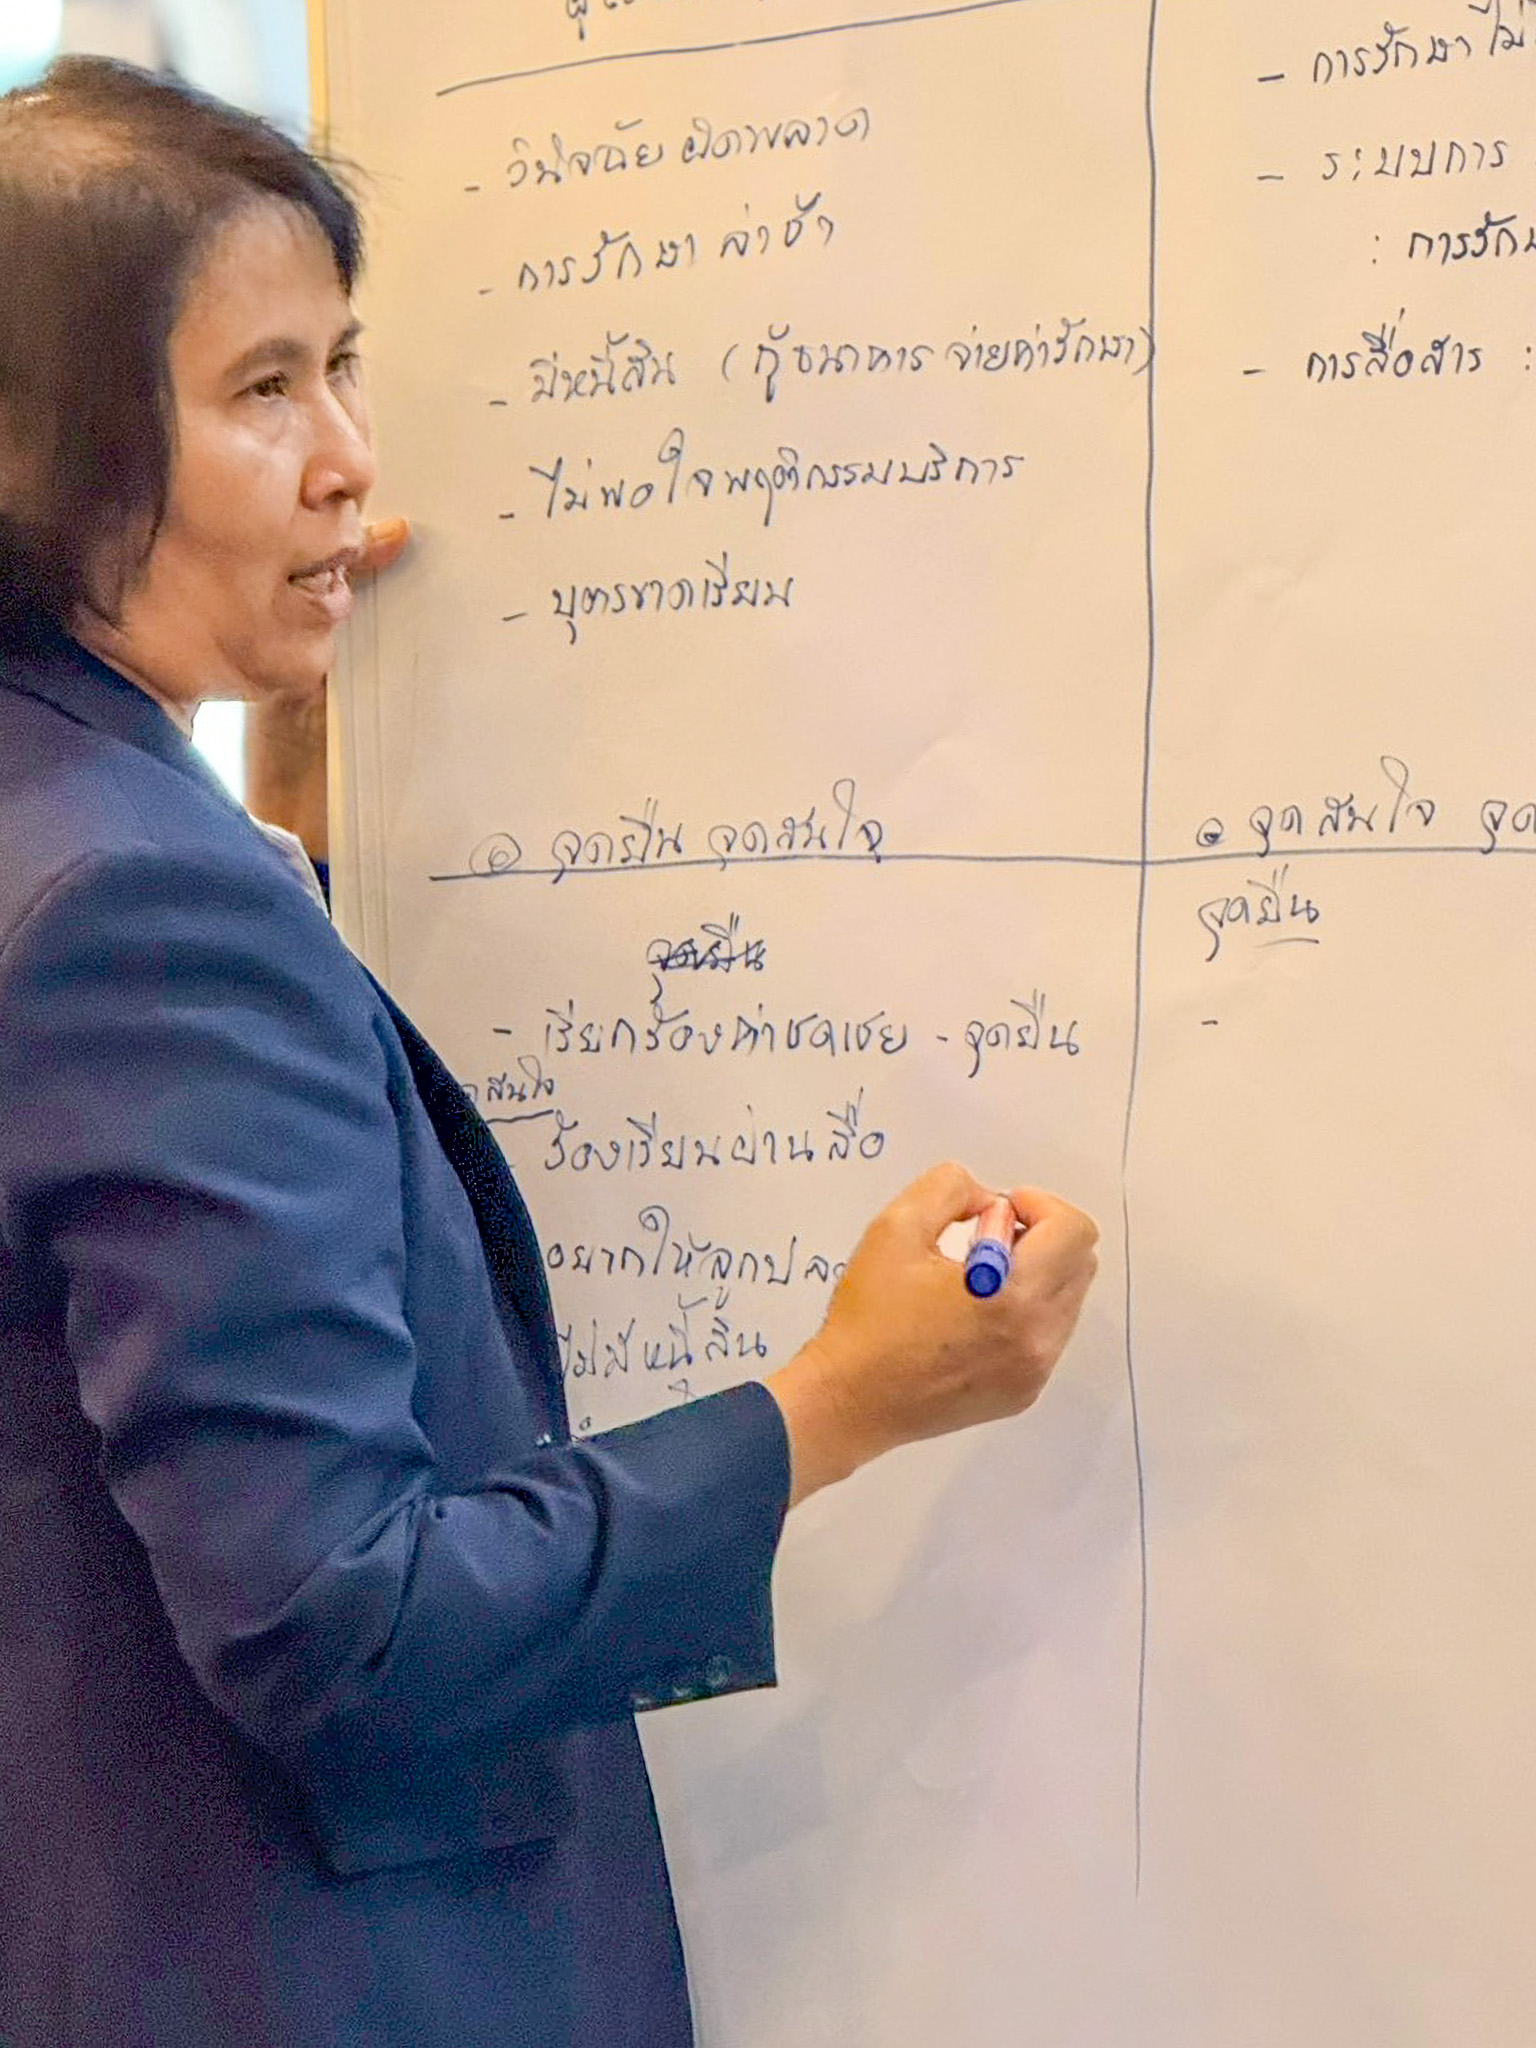 - วินิจฉัยผิดพลาด
- การรักษาล่าช้า
- มีหนี้สิน (กู้ธนาคารจ่ายค่ารักษา)
- ไม่พอใจพฤติกรรมบริการ
- บุตรขาดเรียน
จุดยืน จุดสนใจ
- เรียกร้องค่าชดเชย - จุดยืน
สนใจ
- ร้องเรียนผ่านสื่อ
อยากให้ลูก
ไม่มีหนี้สิน
- การรักษา
- ระบบการ
: การรักษ
- การสื่อสาร :
จุดสนใจ จุด
จุดยืน
-